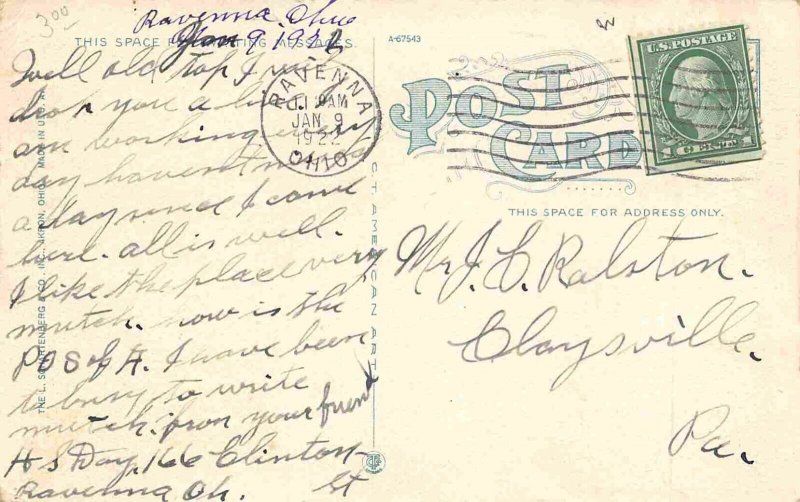 300
Ravenna, Ohio
Jan 9, 1922
THIS SPACE FOR PRINTING MESSAGES.
Well old top I will
drop you a line
am working every
day havent mised
a day since I came
here. all is well.
I like the place very
mutch. how is the
POS of A. I have been
to busy to write
mutch. from your friend
H S Day, 166 Clinton
Ravenna Oh. St
RAVENNA
AM
JAN 9
1922
OHIO
THE L. SCHAEFENBERG CO., INC., AKRON, OHIO. MADE IN U.S.A.
CT AMERICAN ART
A-67543
POST
CARD
U.S. POSTAGE
1 CENT 1
THIS SPACE FOR ADDRESS ONLY.
Mr J. C. Ralston.
Claysville.
Pa.